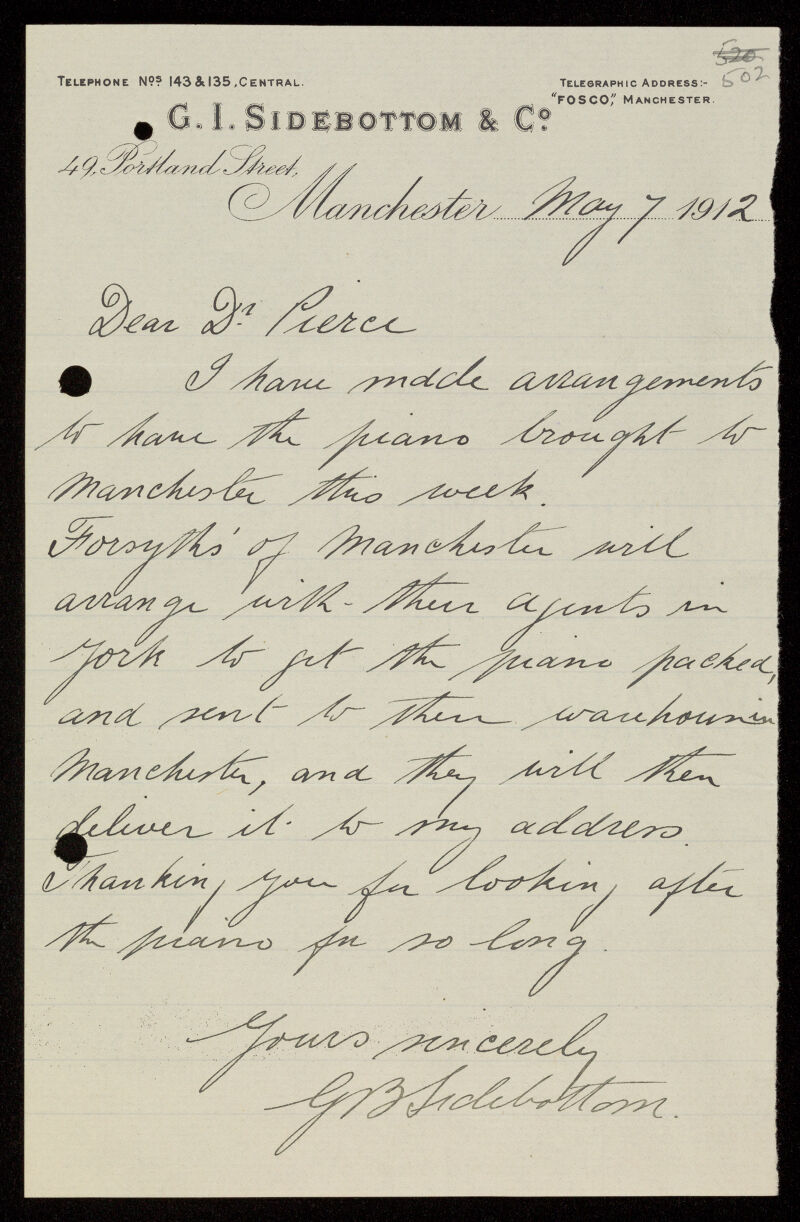 520
502
TELEPHONE Nos. 143 & 135, CENTRAL.
TELEGRAPHIC ADDRESS:-
"FOSCO," MANCHESTER.
G. I. SIDEBOTTOM & Co.
49, Portland Street,
Manchester May 7 1912
Dear Dr. Pierce
I have made arrangements
to have the piano brought to
Manchester this week.
Forsyths' of Manchester will
arrange with their agents in
York to get the piano packed,
and sent to their warehouse in
Manchester, and they will then
deliver it to my address.
Thanking you for looking after
the piano for so long.
Yours sincerely
G B Sidebottom.